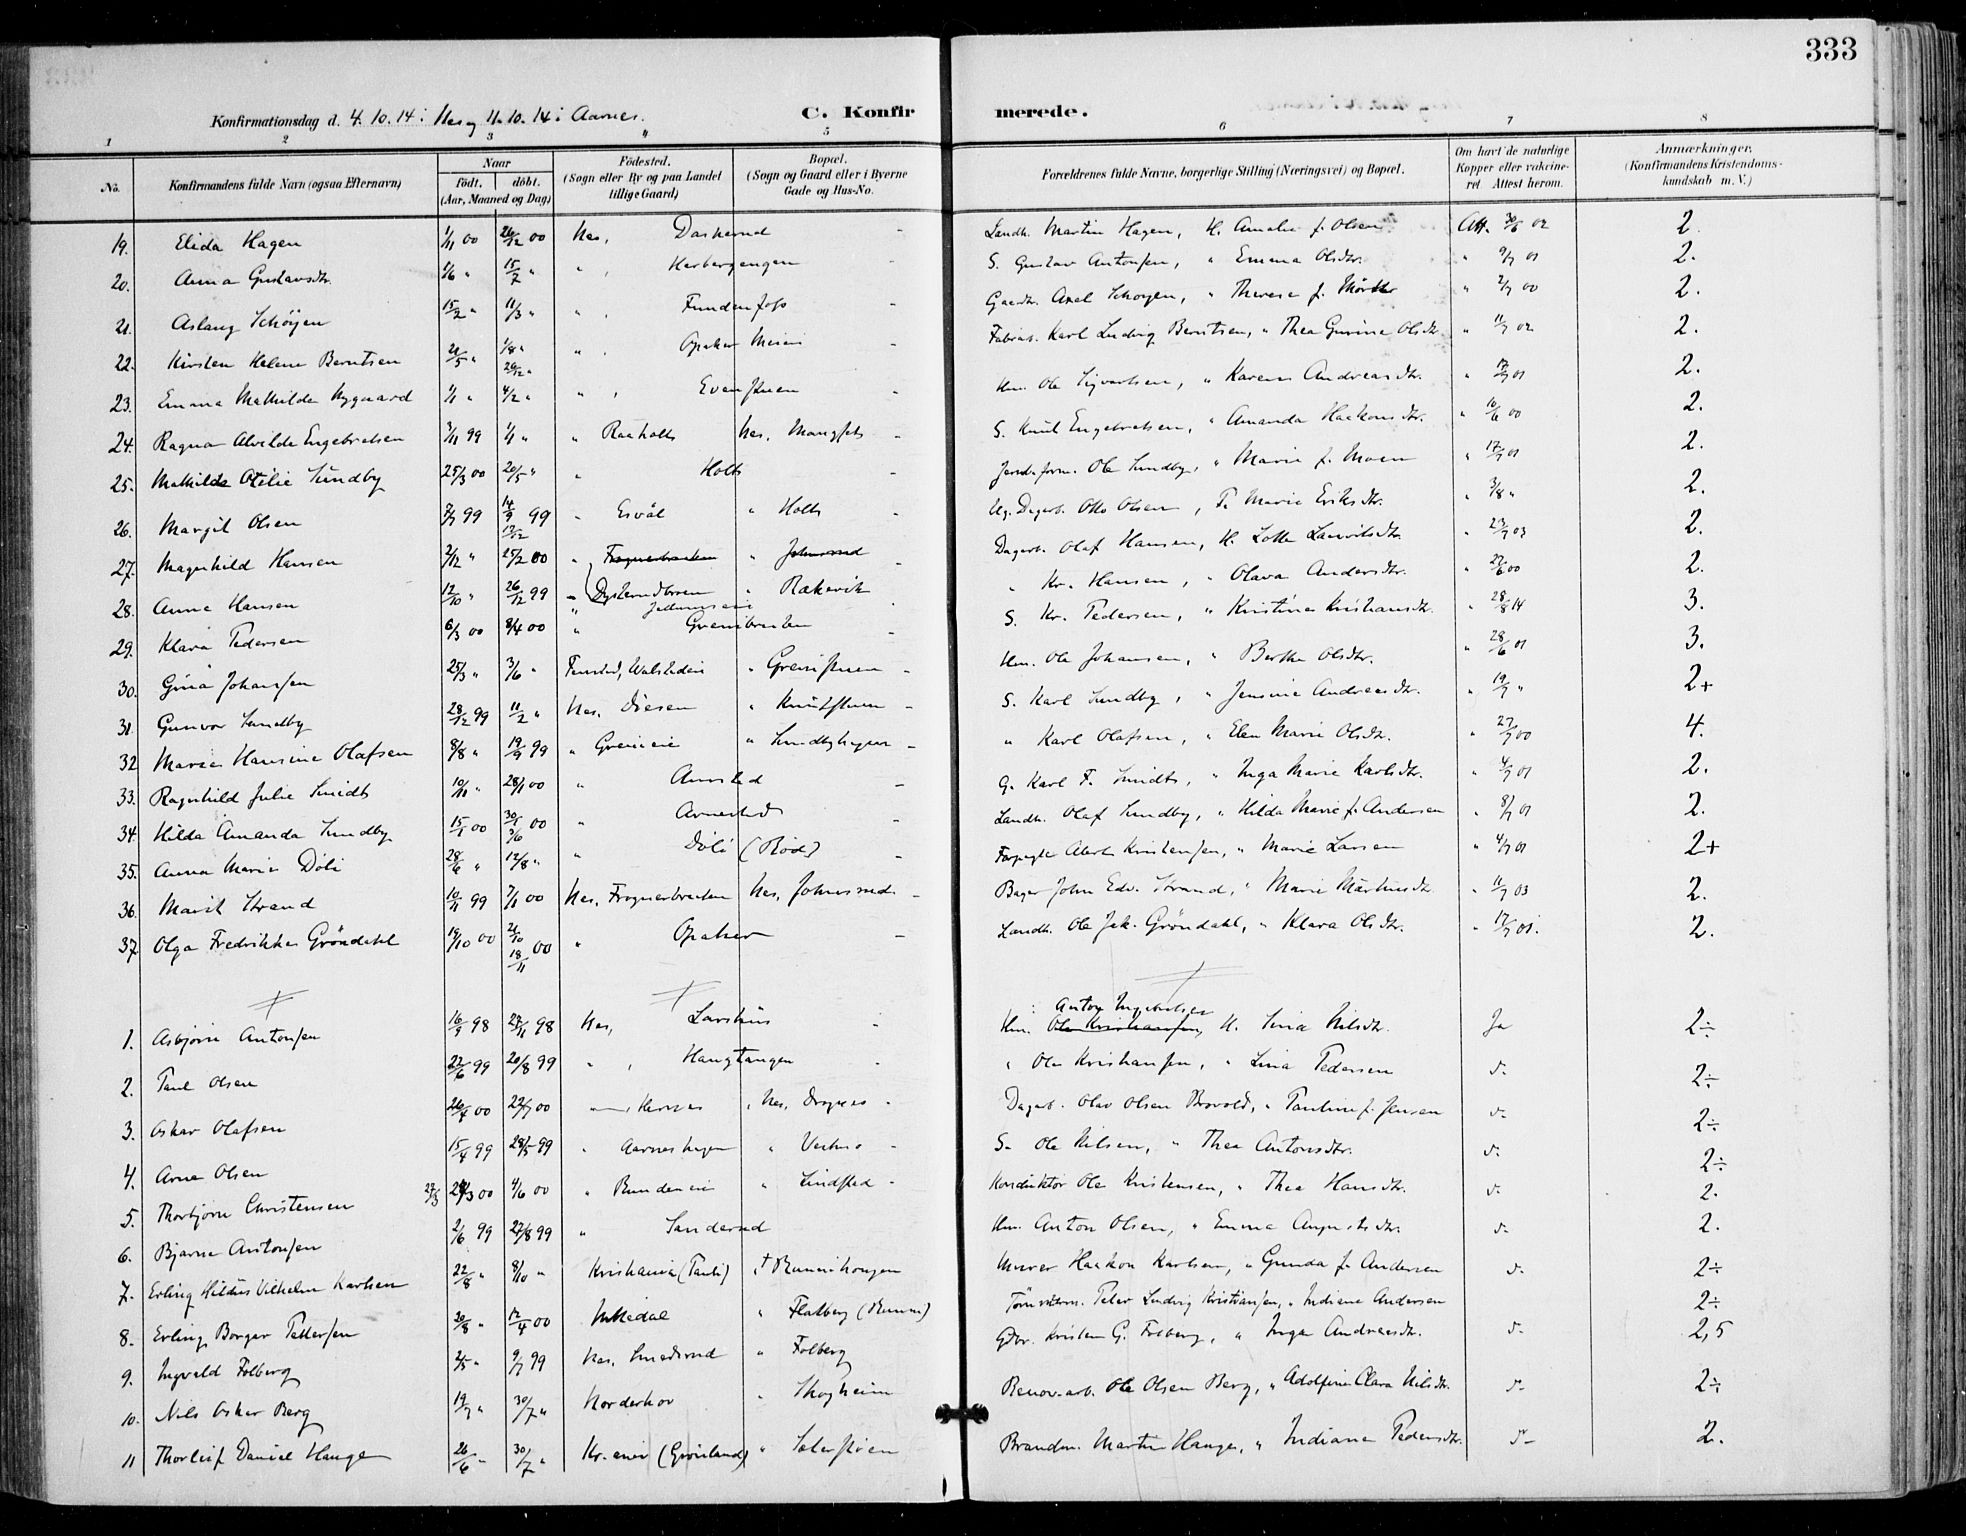 333
Konfirmationsdag d. 4.10.14 i Nes og 11.10.14 i Aarnes. C. Konfir merede.
1 2 3 5 6 7 8
No. Konfirmandens fulde Navn (ogsaa Efternavn) Naar født, døbt. (Aar, Maaned og Dag) Fødested. (Sogn eller By og paa Landet tillige Gaard) Bopæl. (Sogn og Gaard eller i Byerne Gade og Hus-No. Forældrenes fulde Navne, borgerlige Stilling (Næringsvei) og Bopæl. Om havt de naturlige Kopper eller vakcineret. Attest herom. Anmærkninger, (Konfirmandens Kristendomskundskab m. V.)
19. Elida Hagen 1/11 00 26/12 00 Nes, Daskerud Landh. Martin Hagen, H. Amalie f. Olsen Att. 30/6 02 2.
20. Anna Gustavsdtr. 1/6 " 15/7 " " , Herbergengen S. Gustav Antonsen, " Emma Olsdtr. " 9/7 01 2.
21. Aslaug Schøyen 15/2 " 11/3 " " , Fundenfoss Gaardbr. Axel Schøyen, " Therese f. " 2/7 00 2.
22. Kirsten Helene Berntsen 20/5 " 1/8 " " , Opaker Meieri Fabrarb. Karl Ludvig Berntsen, " Thea Gurine Olsdtr. " 11/7 02 2.
23. Emma Mathilde Nygaard 1/1 " 26/12 " 4/2 " " , Evenstuen Hm. Ole Sigvartsen, " Karen Andreasdtr. " 17/7 01 2.
24. Ragna Alvilde Engebretsen 3/11 99 1/1 " " Raaholt Nes, Mangset S. Knut Engebretsen, " Amanda Haakonsdtr. " 10/6 00 2.
25. Mathilde Otilie Sundby 25/3 00 20/5 " " Holt Jernb.form. Ole Sundby, " Marie f. Moen " 17/7 01 2.
26. Margit Olsen 7/7 99 14/9 99 " Esval " Holt Ug. Dagarb. Otto Olsen, F. Marie Eriksdtr. " 3/8 " 2.
27. Magnhild Hansen 2/12 " 17/12 25/2 00 " Frognerbraaten " Johnsrud Dagarb. Olaf Hansen, H. Lotte Lauritsdtr. " 23/7 03 2.
28. Anna Hansen 12/10 " 26/12 99 " Dysterudbroen " Rakevik " Kr. Hansen, " Olava Andersdtr. " 27/6 00 2.
29. Klara Pedersen 6/3 00 8/4 00 " Grenibraaten S. Kr. Pedersen, " Kristine Kristiansdtr. " 28/8 14 3.
30. Gina Johansen 25/3 " 3/6 " Fenstad, " Grenistuen Hm. Ole Johansen, " Berthe Olsdtr. " 28/6 01 3.
31. Gunvor Sundby 28/12 99 11/2 " Nes. Diesen " Knutstuen S. Karl Sundby, " Jensine Andreasdtr. " 19/7 " 2+
32 Marie Hansine Olafsen 8/8 " 19/9 99 " Greneie " Sundbyhagen " Karl Olafsen, " Elen Marie Olsdtr. " 27/7 00 4.
33. Ragnhild Julie Smidt 10/11 " 28/1 00 " Aarnsted G. Karl F. Smidt, " Inga Marie Karlsdtr. " 4/7 01 2.
34. Hilda Amanda Sundby 15/1 00 30/1 00 " Aarnestad Landh. Olaf Sundby, " Hilda Marie f. Andersen " 8/7 01 2.
35. Anna Marie Døli 28/6 " 3/6 12/8 " " Døli (Rød) Forpagter Albert Kristensen, " Marie Larsen " 4/7 01 2+
36. Marit Strand 10/11 99 7/1 00 Nes, Frognerbraaten Nes, Johnsrud Bager John Edv. Strand, " Marie Martinsdtr. " 11/7 03 2.
37 Olga Fredrikke Grøndahl 19/10 00 21/10 18/11 00 " Opaker Landh. Ole Jak. Grøndahl, " Klara Olsdtr. " 17/7 01. 2.
1. Asbjørn Antonsen 16/9 98 27/11 98 Nes, Larshus Hm. Ole Kristiansen, Anton Ingebretsen H. Lina Nilsdtr. Ja 2÷
2. Paul Olsen 22/6 99 20/8 99 " , Haugtangen " Ole Kristiansen, " Lina Pedersen d. 2÷
3. Oskar Olafsen 26/4 00 22/7 00 " , Hernes , Nes, Dragnes Dagarb. Olav Olsen Brovold, " Pauline f. Jensen d. 2÷
4. Arne Olsen 15/4 99 28/5 99 " Aarneshagen " Vestmo S. Ole Nilsen, " Thea Antonsdtr. d. 2÷
5. Thorbjørn Christensen 22/3 21/3 00 4/6 00 " Bundeneie " Lindstad Konduktør Ole Kristensen, " Thea Hansdtr. d. 2.
6. Bjarne Antonsen 2/6 99 27/8 99 " Sanderud Hm. Anton Olsen, " Emma Augustsdtr. d. 2.
7. Erling Hildus Vilhelm Karlsen 22/8 " 8/10 " Kristiania (Pauli) " Runnihougen Murer Haakon Karlsen, " Gunda f. Andersen d. 2÷
8. Erling Borger Pettersen 20/8 " 12/4 00 Mittedal " Flatberg (Runni) Peter Ludvig Kristiansen, " Indiane Andersen 2÷
9. Ingvald Folberg 2/5 " 9/7 99 Nes, Smedsrud " Folberg Gbr. Kristen G. Folberg, " Inga Andreasdtr. d. 2,5
10. Nils Oskar Berg 19/7 " 30/7 " Norderhov " Skogheim Renov.arb. Ole Olsen Berg, " Adolfine Clara Nilsdtr. d. 2÷
11 Thorleif Daniel Hauge 26/6 " 30/7 " Kr.ania (Grønland) " Seterstøen Brandm. Martin Hauge, " Indiane Pedersdtr. d. 2.